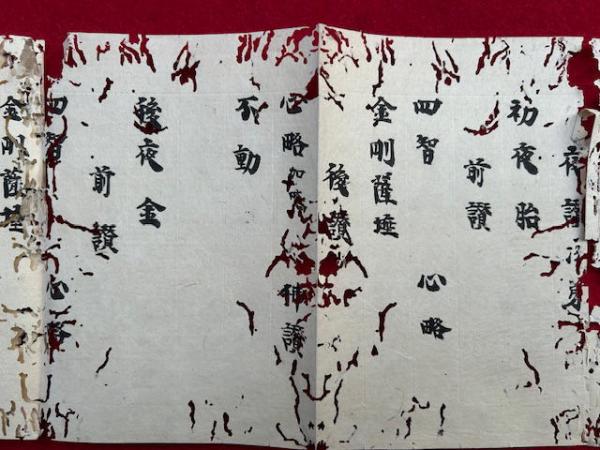 夜讃
初夜胎
前讃
四智 心略
金剛薩埵
後讃
心略 神讃
不動
後夜金
前讃
四智 心略
金剛薩埵